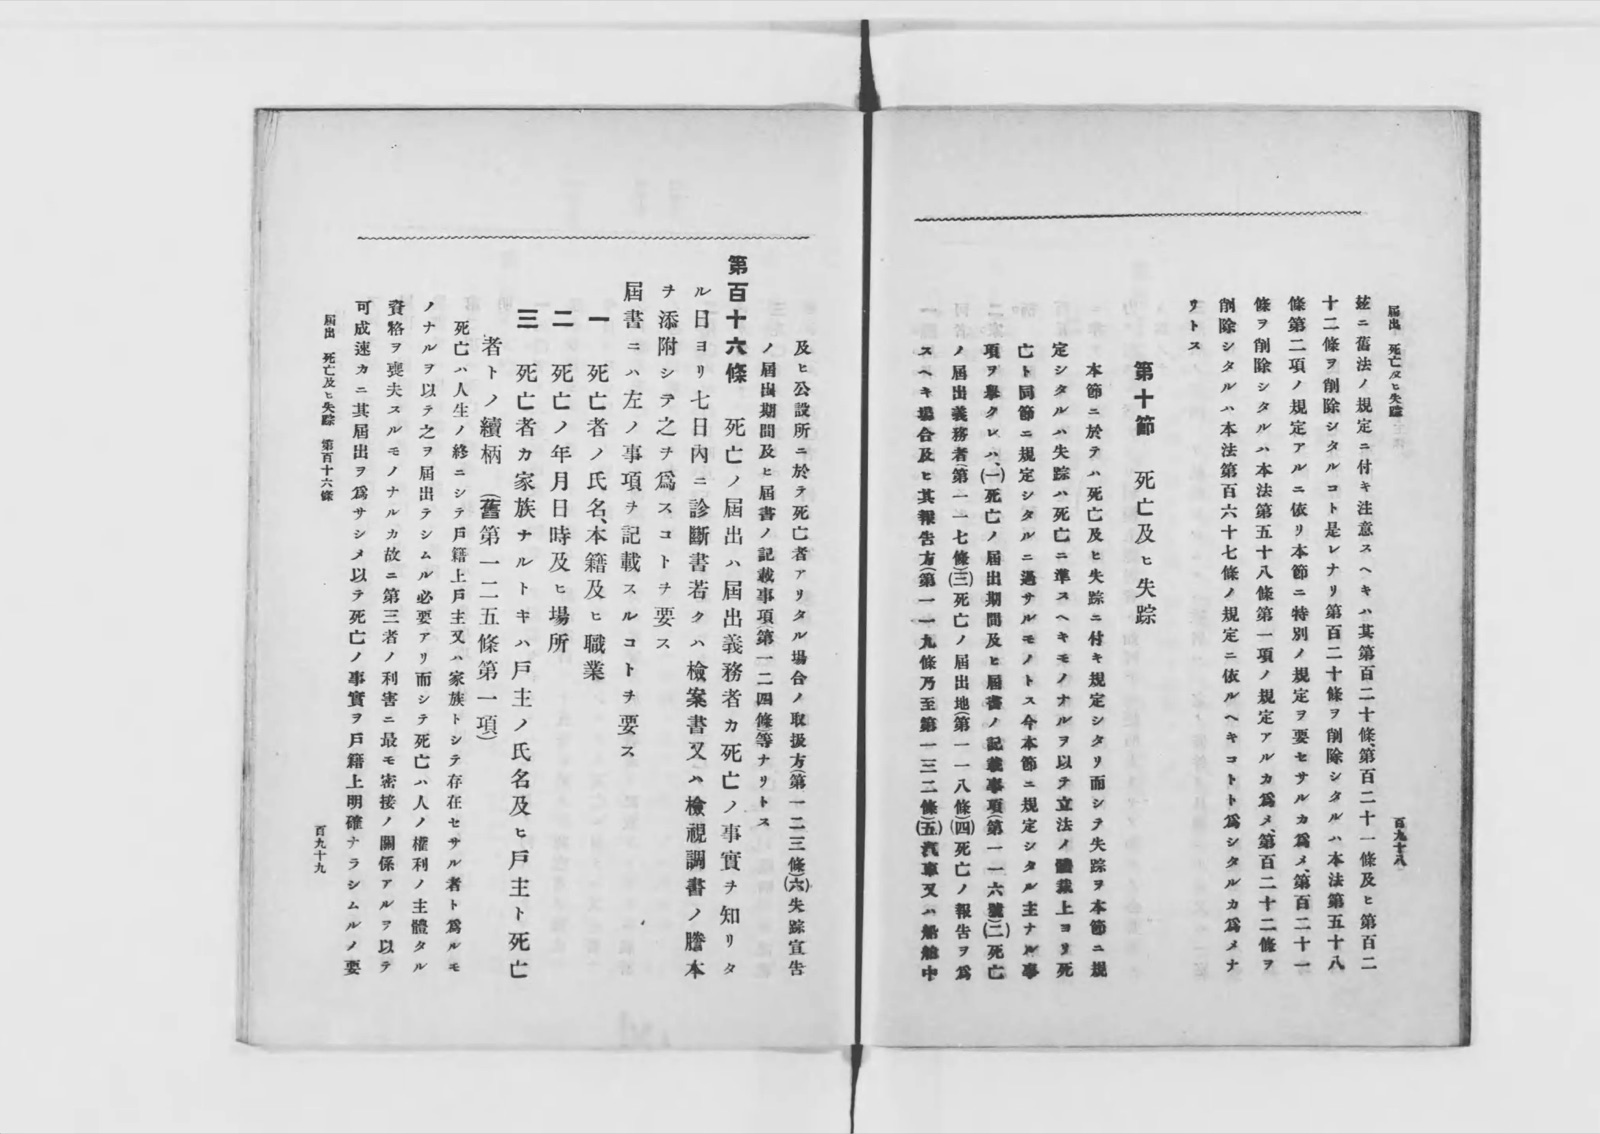 屆出 死亡及ヒ失踪
百九十八
玆ニ舊法ノ規定ニ付キ注意スヘキハ其第百二十條、第百二十一條及ヒ第百二
十二條ヲ削除シタルコト是レナリ第百二十條ヲ削除シタルハ本法第五十八
條第二項ノ規定アルニ依リ本節ニ特別ノ規定ヲ要セサルカ爲メ、第百二十一
條ヲ削除シタルハ本法第五十八條第一項ノ規定アルカ爲メ、第百二十二條ヲ
削除シタルハ本法第百六十七條ノ規定ニ依ルヘキコトト爲シタルカ爲メナ
リトス
第十節 死亡及ヒ失踪
本節ニ於テハ死亡及ヒ失踪ニ付キ規定シタリ而シテ失踪ヲ本節ニ規
定シタルハ失踪ハ死亡ニ準スヘキモノナルヲ以テ立法ノ體裁上ヨリ死
亡ト同節ニ規定シタルニ過サルモノトス今本節ニ規定シタル主ナル事
項ヲ擧クレハ、(一)死亡ノ屆出期間及ヒ屆書ノ記載事項(第一一六號)(二)死亡
ノ屆出義務者(第一一七條)(三)死亡ノ屆出地(第一一八條)(四)死亡ノ報告ヲ爲
スヘキ場合及ヒ其報告方(第一一九條乃至第一三二條)(五)汽車又ハ船舶中
及ヒ公設所ニ於テ死亡者アリタル場合ノ取扱方(第一二三條)(六)失踪宣告
ノ屆出期間及ヒ屆書ノ記載事項(第一二四條)等ナリトス
第百十六條 死亡ノ屆出ハ屆出義務者カ死亡ノ事實ヲ知リタ
ル日ヨリ七日內ニ診斷書若クハ檢案書又ハ檢視調書ノ謄本
ヲ添附シテ之ヲ爲スコトヲ要ス
屆書ニハ左ノ事項ヲ記載スルコトヲ要ス
一 死亡者ノ氏名、本籍及ヒ職業
二 死亡ノ年月日時及ヒ場所
三 死亡者カ家族ナルトキハ戶主ノ氏名及ヒ戶主ト死亡
者トノ續柄 (舊第一二五條第一項)
死亡ハ人生ノ終ニシテ戶籍上戶主又ハ家族トシテ存在セサル者ト爲ルモ
ノナルヲ以テ之ヲ屆出テシムル必要アリ而シテ死亡ハ人ノ權利ノ主體タル
資格ヲ喪失スルモノナルカ故ニ第三者ノ利害ニ最モ密接ノ關係アルヲ以テ
可成速カニ其屆出ヲ爲サシメ以テ死亡ノ事實ヲ戶籍上明確ナラシムルノ要
屆出 死亡及ヒ失踪 第百十六條
百九十九